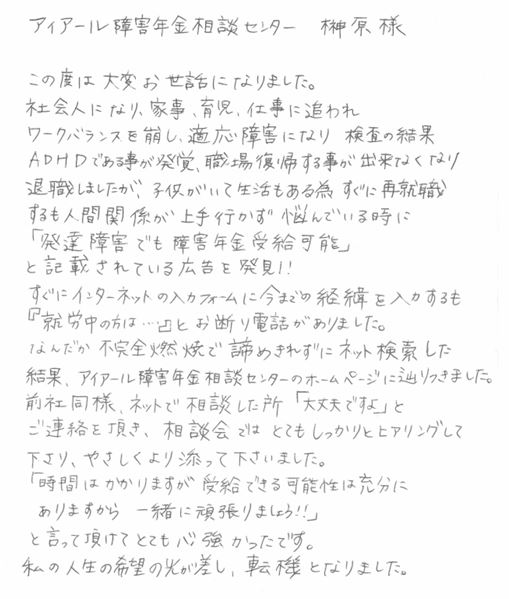 アイアール障害年金相談センター 榊原様
この度は大変お世話になりました。
社会人になり、家事、育児、仕事に追われ
ワークバランスを崩し、適応障害になり 検査の結果
ADHDである事が発覚、職場復帰する事が出来なくなり
退職しましたが、子供がいて生活もある為 すぐに再就職
するも人間関係が上手行かず 悩んでいる時に
「発達障害でも障害年金受給可能」
と記載されている広告を発見!!
すぐにインターネットの入力フォームに今までの経緯を入力するも
『就労中の方は…』とお断り電話がありました。
なんだか不完全燃焼で諦めきれずにネット検索した
結果、アイアール障害年金相談センターのホームページに辿りつきました。
前社同様、ネットで相談した所「大丈夫ですよ」と
ご連絡を頂き、相談会ではとてもしっかりとヒアリングして
下さり、やさしくより添って下さいました。
「時間はかかりますが受給できる可能性は充分に
ありますから 一緒に頑張りましょう!!」
と言って頂けてとても心強かったです。
私の人生の希望の光が差し、転機となりました。